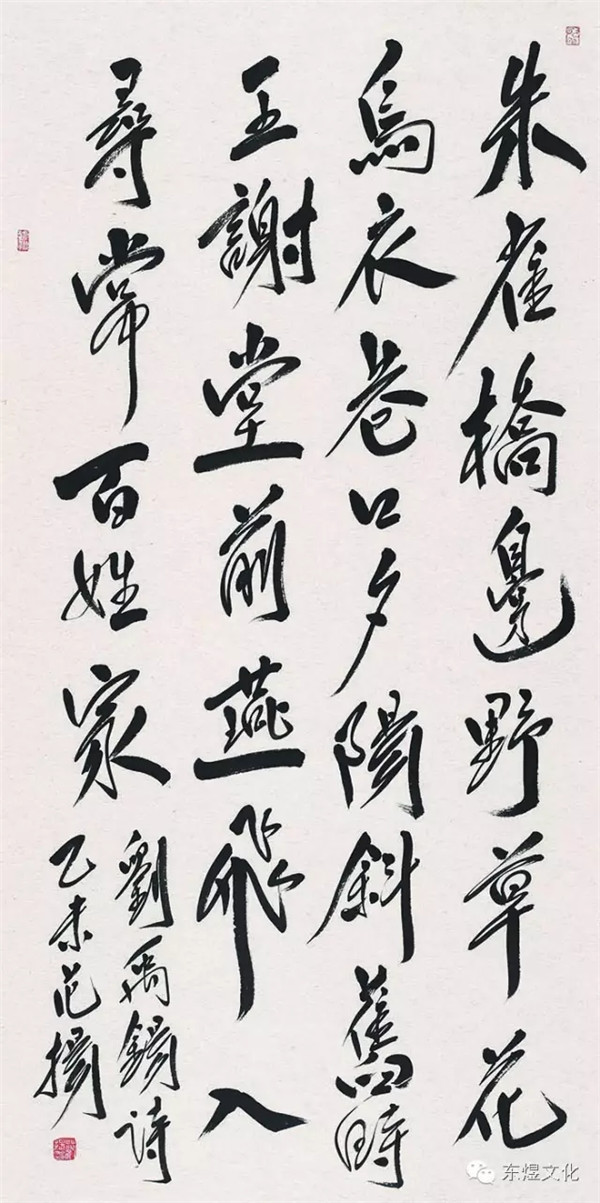 朱雀橋邊野草花
烏衣巷口夕陽斜舊時
王謝堂前燕飛入
尋常百姓家
劉禹錫詩
乙未范揚
东煜文化